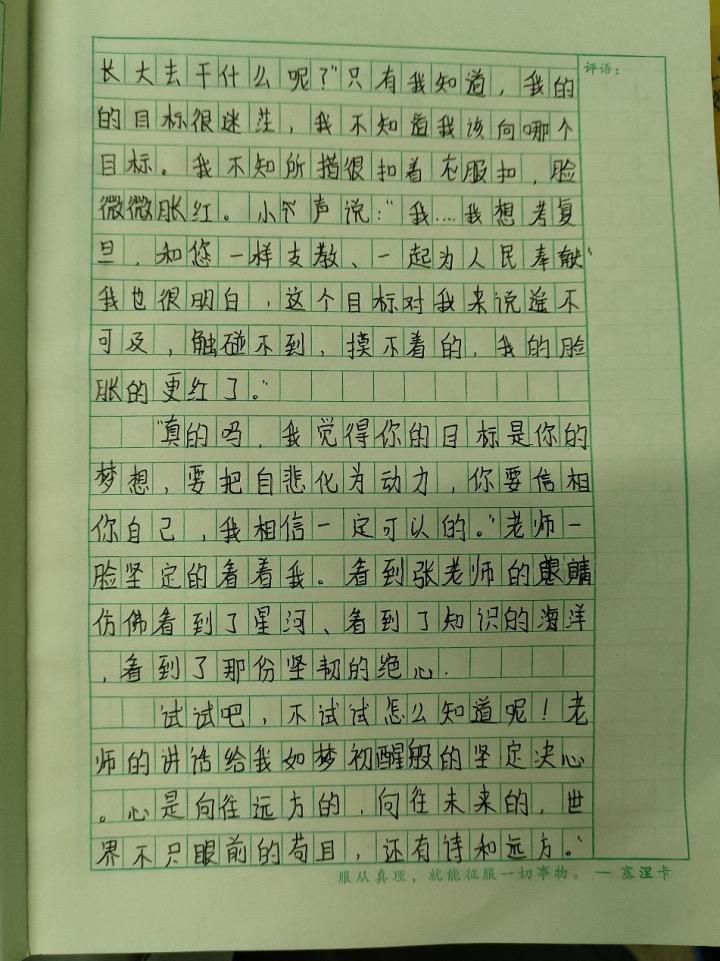 评语：
长大去干什么呢？"只有我知道，我的
的目标很迷茫，我不知道我该向哪个
目标。我不知所措很扣着衣服扣，脸
微微胀红。小声说："我....我想考复
旦，和您一样支教、一起为人民奉献"
我也很明白，这个目标对我来说遥不
可及，触碰不到，摸不着的，我的脸
胀的更红了。"
"真的吗，我觉得你的目标是你的
梦想，要把自悲化为动力，你要信相
你自己，我相信一定可以的。"老师一
脸坚定的看着我。看到张老师的眼睛
仿佛看到了星河、看到了知识的海洋
，看到了那份坚韧的绝心.
试试吧，不试试怎么知道呢！老
师的讲话给我如梦初醒般的坚定决心
。心是向往远方的，向往未来的，世
界不只眼前的苟且，还有诗和远方。"
服从真理，就能征服一切事物。 — 塞涅卡